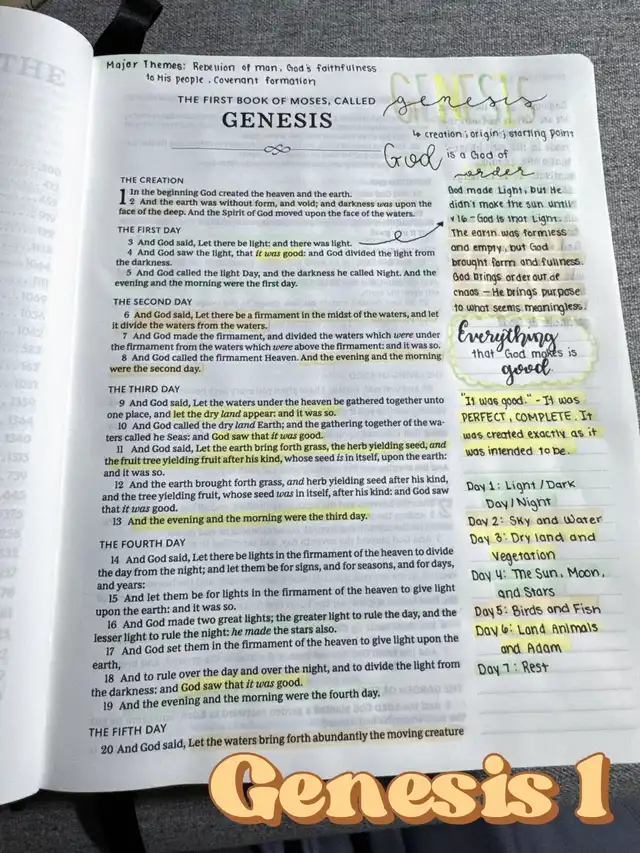 THE
Major Themes: Rebellion of man, God's faithfulness
to His people, Covenant formation
THE FIRST BOOK OF MOSES, CALLED
GENESIS
genesis
↳ creation; origin; starting point
God is a God of
order
THE CREATION
1 In the beginning God created the heaven and the earth.
2 And the earth was without form, and void; and darkness was upon the
face of the deep. And the Spirit of God moved upon the face of the waters.
THE FIRST DAY
3 And God said, Let there be light: and there was light.
4 And God saw the light, that it was good: and God divided the light from
the darkness.
5 And God called the light Day, and the darkness he called Night. And the
evening and the morning were the first day.
THE SECOND DAY
6 And God said, Let there be a firmament in the midst of the waters, and let
it divide the waters from the waters.
7 And God made the firmament, and divided the waters which were under
the firmament from the waters which were above the firmament: and it was so.
8 And God called the firmament Heaven. And the evening and the morning
were the second day.
THE THIRD DAY
9 And God said, Let the waters under the heaven be gathered together unto
one place, and let the dry land appear: and it was so.
10 And God called the dry land Earth; and the gathering together of the wa-
ters called he Seas: and God saw that it was good.
11 And God said, Let the earth bring forth grass, the herb yielding seed, and
the fruit tree yielding fruit after his kind, whose seed is in itself, upon the earth:
and it was so.
12 And the earth brought forth grass, and herb yielding seed after his kind,
and the tree yielding fruit, whose seed was in itself, after his kind: and God saw
that it was good.
13 And the evening and the morning were the third day.
THE FOURTH DAY
14 And God said, Let there be lights in the firmament of the heaven to divide
the day from the night; and let them be for signs, and for seasons, and for days,
and years:
15 And let them be for lights in the firmament of the heaven to give light
upon the earth: and it was so.
16 And God made two great lights; the greater light to rule the day, and the
lesser light to rule the night: he made the stars also.
17 And God set them in the firmament of the heaven to give light upon the
earth,
18 And to rule over the day and over the night, and to divide the light from
the darkness: and God saw that it was good.
19 And the evening and the morning were the fourth day.
THE FIFTH DAY
20 And God said, Let the waters bring forth abundantly the moving creature
God made Light, but He
didn't make the sun until
v16 - God is that Light.
The earth was formless
and empty, but God
brought form and fullness.
God brings order out of
chaos - He brings purpose
to what seems meaningless.
Everything
that God makes is
good
"It was good." - It was
PERFECT, COMPLETE. It
was created exactly as it
was intended to be.
Day 1: Light/Dark
Day/Night
Day 2: Sky and Water
Day 3: Dry land and
Vegetation
Day 4: The Sun, Moon,
and Stars
Day 5: Birds and Fish
Day 6: Land Animals
and Adam
Day 7: Rest
Genesis 1